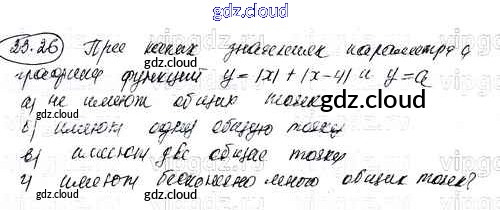 gdz.cloud
23.26 При каких значениях параметра a
графики функций y=|x|+|x-4| и y=a
а) не имеют общих точек
gdz.cloud
б) имеют одну общую точку
gdz.cloud
в) имеют две общие точки
г) имеют бесконечно много общих точек?
gdz.cloud